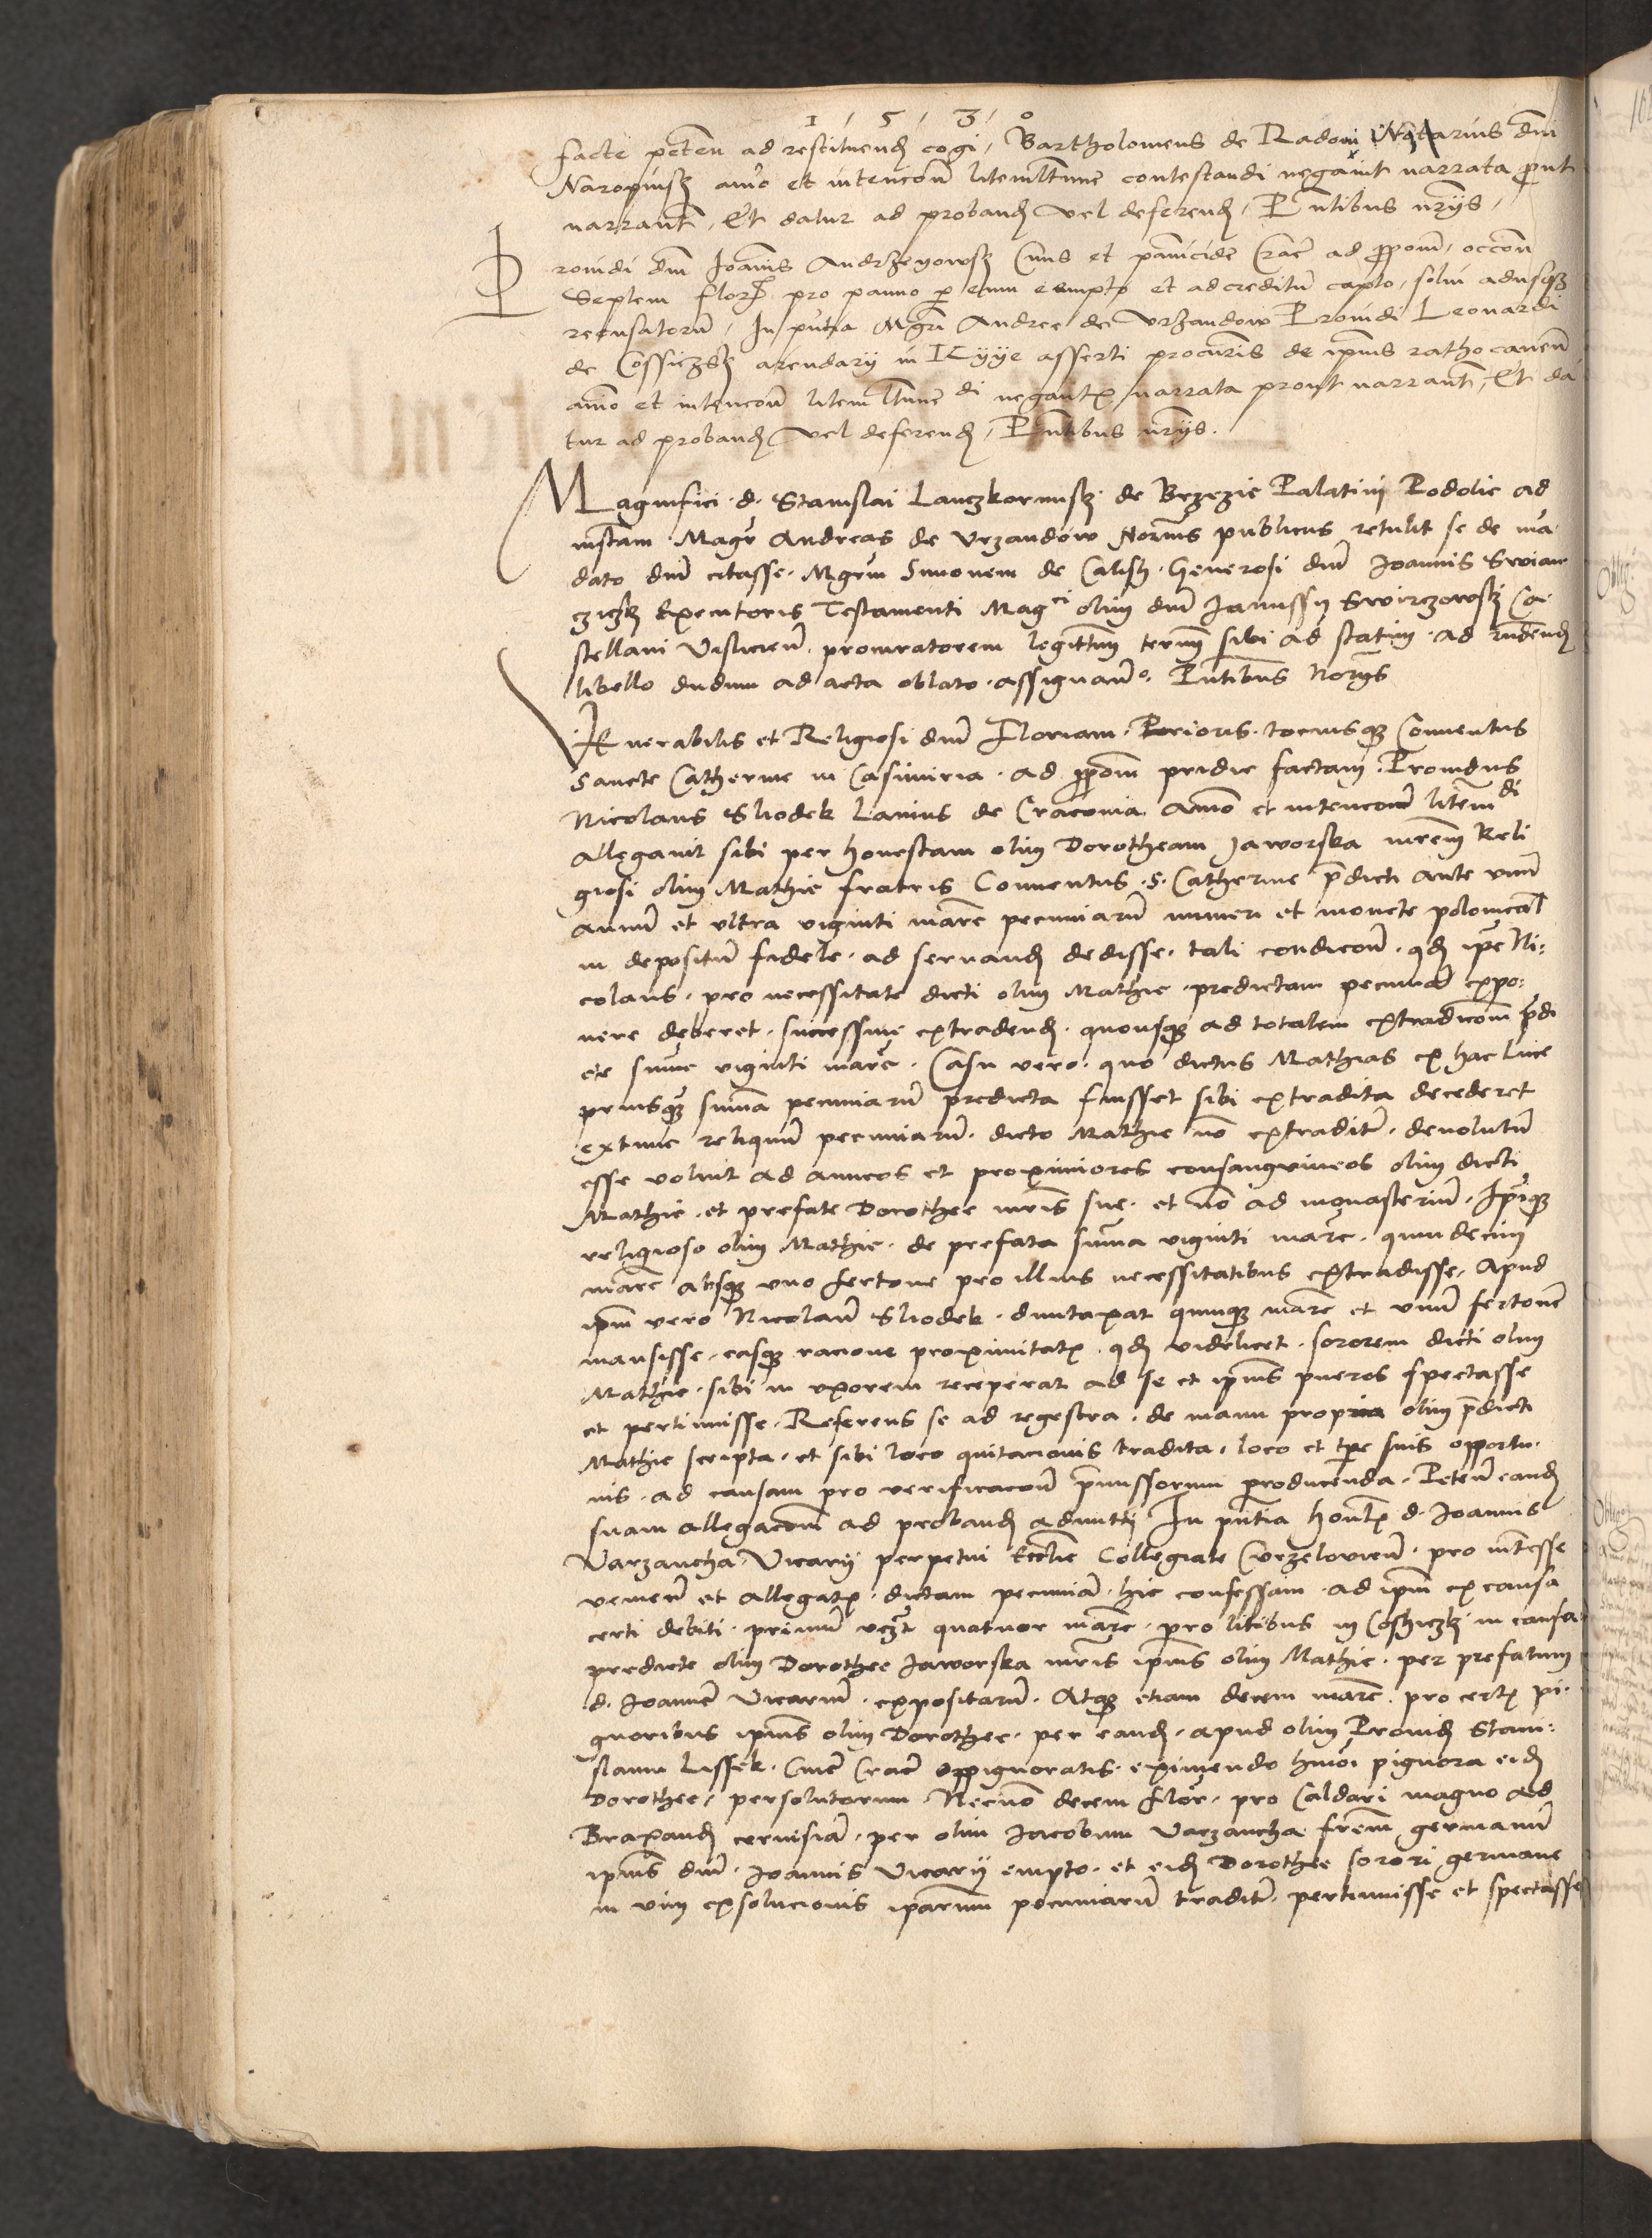 1530
facte petem ad restituend cogi, Bartholomeus de Radom Notarius dni
Naropinsk aīo et intencōn litem contestandi negavit narrata prout
narrantr, Et datur ad proband vel deferend, Pntibus nrijs,
Providi dni Joānis Andrzeyowsk Civis et pannicide Crac ad ppōnem occōn
Septem flor pro panno p eum empto et ad creditū capto, solui adusqz
recusatorū, In pntia Mgri Andree de Vrzandow Providi Leonardi
de Cossiczsk arendarij in Kyye asserti procuris de ipius ratho caven
aīo et intencōn litem di negantis narrata prout narrantr, Et da
tur ad proband vel deferend, Pntibus nrijs.
Magnifici d. Stanislai Lanczkorunsk de Brzezie Palatini Podolie ad
instam Magr Andreas de Vrzandow Norius publicus retulit se de mā
dato dni citasse Mgrum Simonem de Calish Generosi dni Joannis Swian
Executoris Testamenti Magci olim dni Janussij Swirczowsk Ca
stellani Visliciem procuratorem legittim termū sibi ad statim ad
libello dudum ad acta oblato assignanō. Pntibus Norijs
Venerabilis et Religiosi dni Floriani Prioris tociusqz Conventus
Sancte Catherine in Casimiria ad ppōnem pridie factam Providus
Nicolaus Sliodek Lanius de Cracovia Aīo et intencōn litem di
allegavit sibi per honestam olim Dorotheam Jaworska mrem Reli
giosi olim Mathie fratris Conventus S. Catherine pdicti ante unū
annū et ultra viginti marc pecuniarū numeri et monete polonical
in depositū fidele ad servand dedisse tali condicōn qd ipe Ni
colaus pro necessitate dicti olim Mathie predictam pecuniā expo
nere deberet successive extradend quousqz ad totalem extradicōm pdi
cte sūme viginti marc. Casu vero quo dictus Mathias ex hac luce
priusqz sūma pecuniarū predicta fuisset sibi extradita decederet
extunc reliquū pecuniarū dicto Mathie nō extraditū devolutū
esse voluit ad amicos et proximiores consanguineos olim dicti
Mathie et prefate Dorothee mris sue et nō ad monasteriū. Ipiqz
religioso olim Mathie de prefata sūma viginti marc quindecim
marc absqz uno fertone pro illius necessitatibus extradisse, Apud
ipm vero Nicolaū Sliodek duntaxat quinqz marc et unū fertonē
mansisse, easqz racione proximitatis qd videlicet sororem dicti olim
Mathie sibi in uxorem receperat ad se et ipius pueros spectasse
et pertinuisse. Referens se ad regestra de manu propria olim pdicti
Mathie scripta et sibi loco quitacionis tradita, loco et tpe suis opportu
nis ad causam pro verificacōn pmissorum producenda. Peten eand
suam allegacōm ad proband admitti In pntia honlis d. Joannis
Varzancha Vicarij perpetui Ecclie Collegiate pro intesse
venien et allegantis dictam pecuniā hic confessam ad ipm ex causa
certi debiti primū vczt quatuor marc pro litibus in in causa
predicte olim Dorothee Jaworska mris ipius olim Mathie per prefatum
d. Joannē Vicariū expositarū. Atqz etiam decem marc pro certis pi
gnoribus ipius olim Dorothee per eand apud olim Provid Stani
slaum Lissek Civē Crac oppignoratis eximendo hmōi pignora eid
Dorothee, persolutarum Necnō decem flor pro Caldari magno ad
Braxand cervisiā per olim Jacobum Varzancha frem germanū
ipius dni Joannis Vicarij empto et eid Dorothee sorori germane
in vim exsolucionis iparum pecuniarū traditē pertinuisse et spectasse